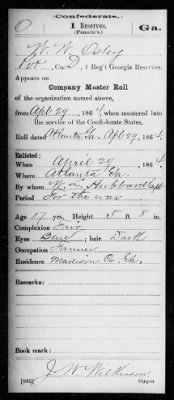 Confederate.
1 Reserves. Ga.
(Fannin's)
W. W. Osley
Pvt, Co. D, 1 Reg't Georgia Reserves.
Appears on
Company Muster Roll
of the organization named above,
from Apl 29, 1864, when mustered into
the service of the Confederate States.
Roll dated Atlanta Ga. Apl 29, 1864
Enlisted:
When April 29, 1864
Where Atlanta Ga.
By whom Hubbard Capt
Period For the war
Age 17 years. Height 5 ft 8 in.
Complexion Fair
Eyes Blue; hair Dark
Occupation Farmer
Residence Madison Co. Ga.
Remarks:
Book mark:
J W Wilkinson
Copyist.